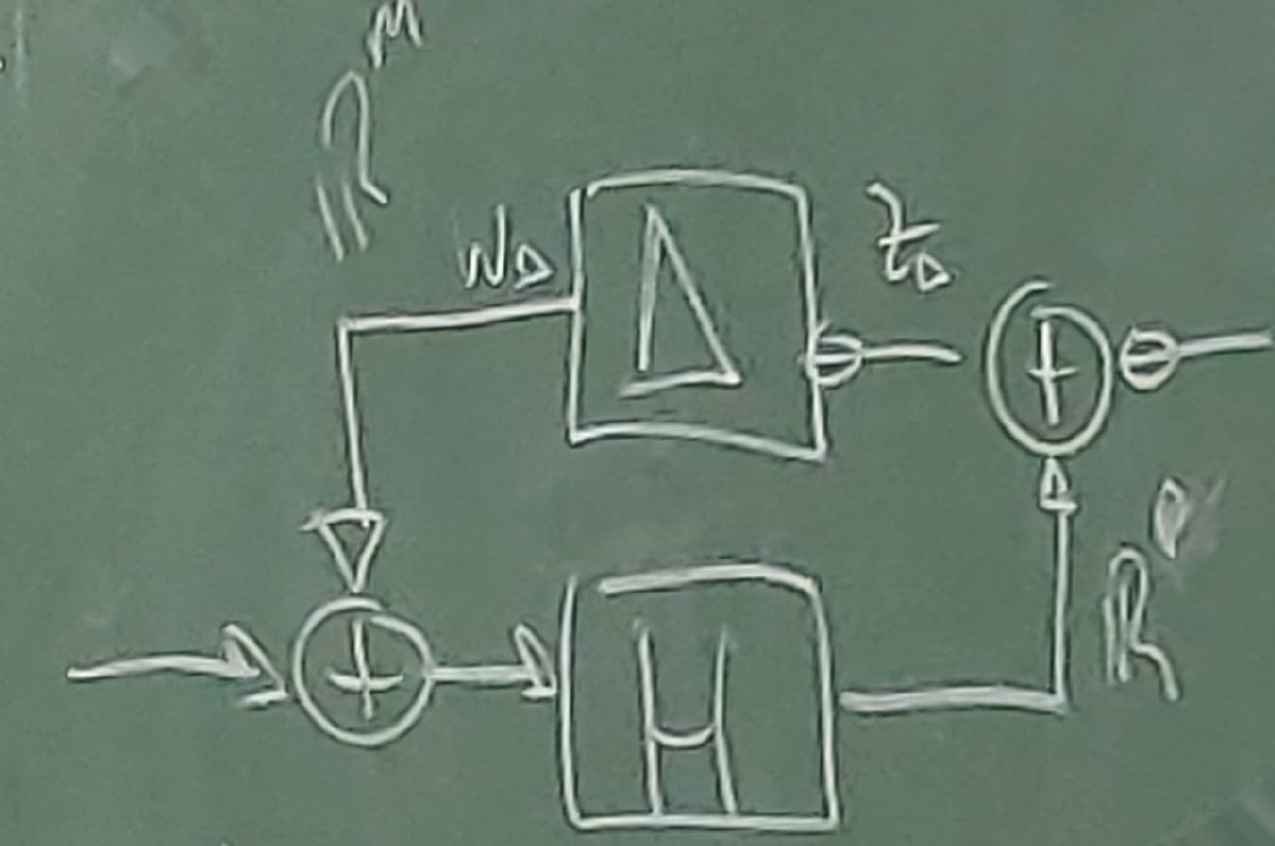 ℝᴹ
W_Δ
Δ
z_Δ
+
+
H
ℝᴾ